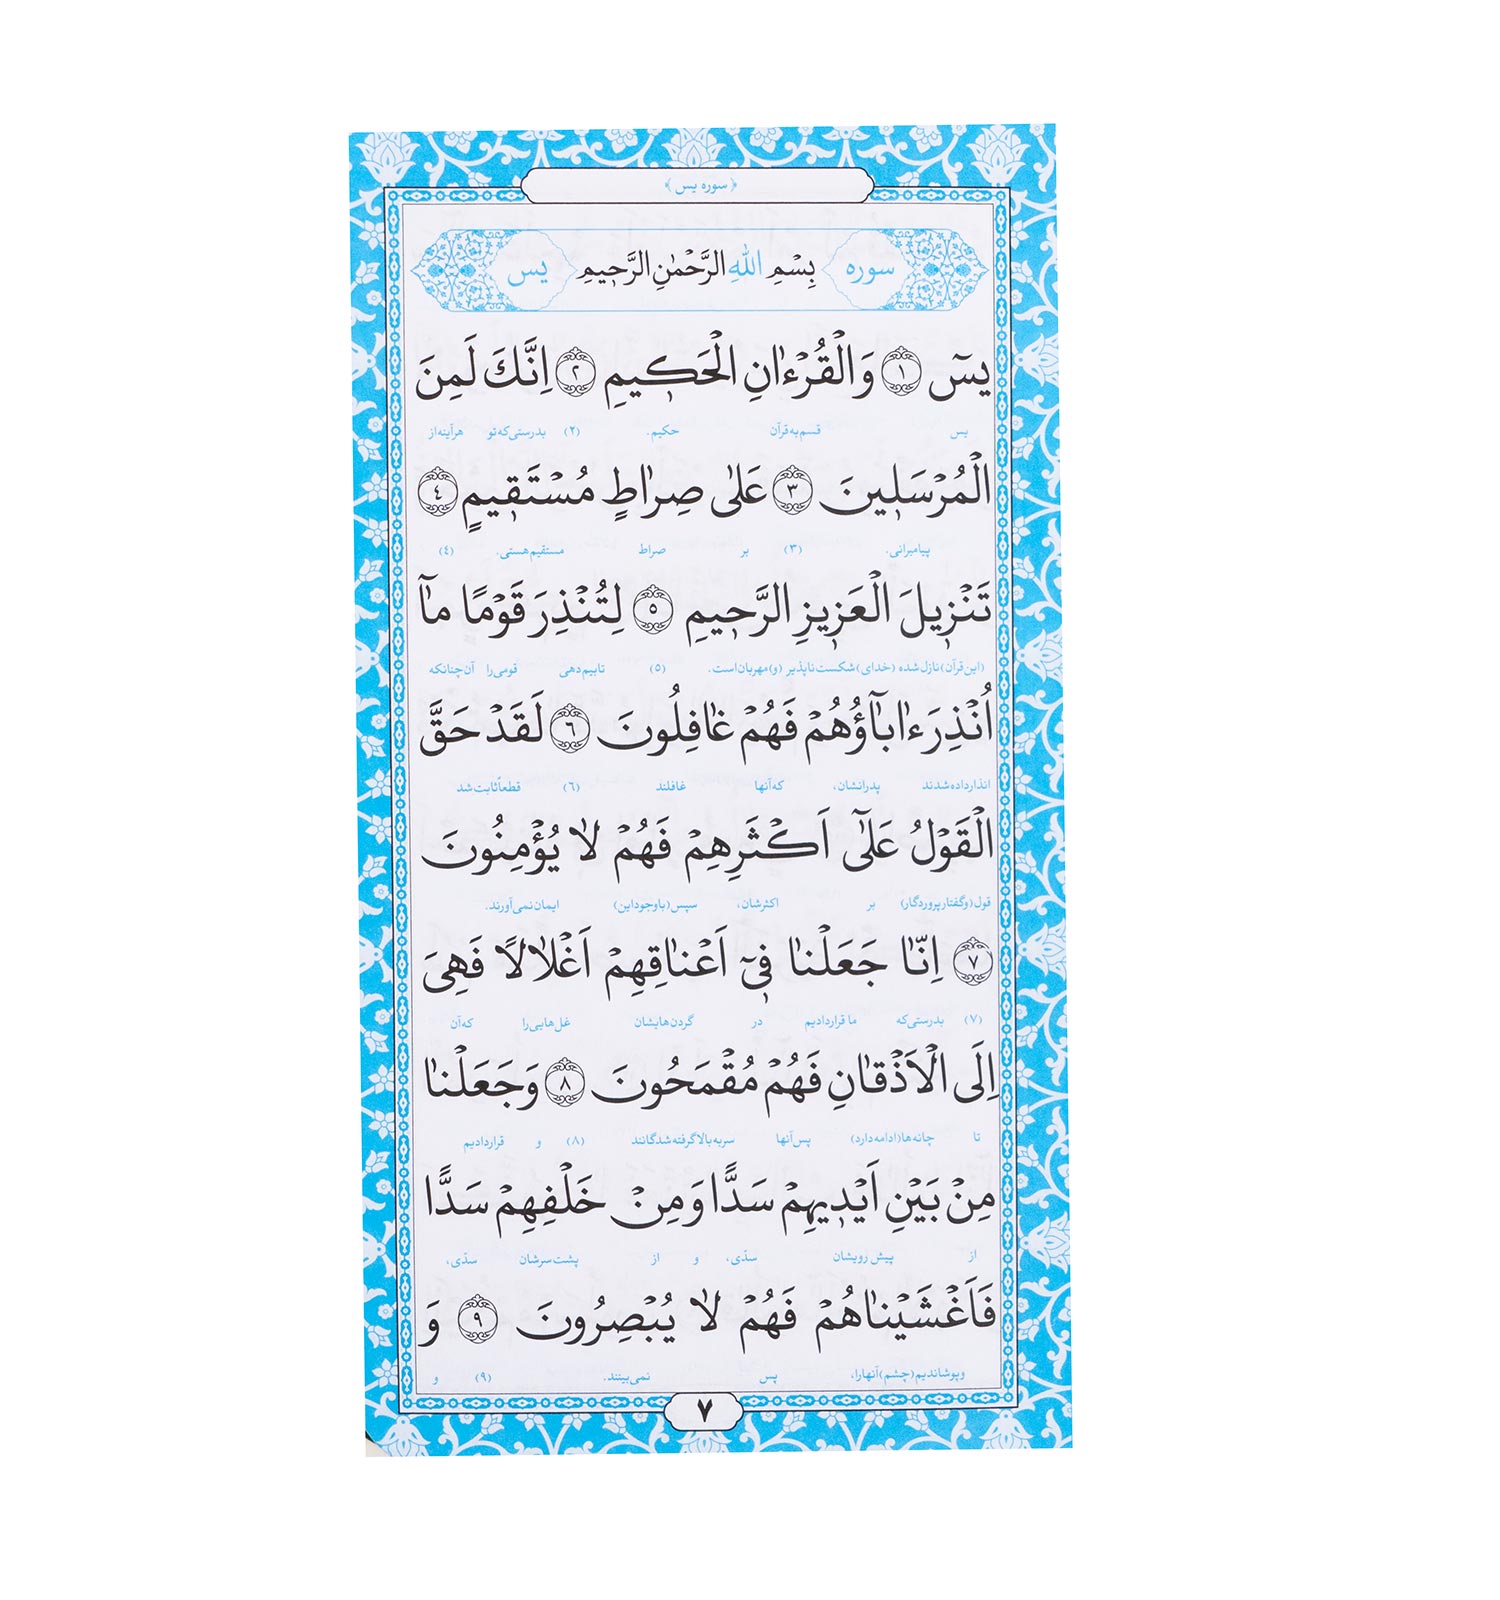 ﴿سوره یس﴾
سوره بِسْمِ اللهِ الرَّحْمٰنِ الرَّحیمِ یس
یسٓ ﴿١﴾ وَالْقُرْءٰانِ الْحَکیمِ ﴿٢﴾ اِنَّكَ لَمِنَ
یس قسم به قرآن حکیم. (۲) بدرستی که تو هرآینه از
الْمُرْسَلینَ ﴿٣﴾ عَلٰی صِرٰاطٍ مُسْتَقیمٍ ﴿٤﴾
پیامبرانی. (۳) بر صراط مستقیم هستی. (٤)
تَنْزیلَ الْعَزیزِ الرَّحیمِ ﴿٥﴾ لِتُنْذِرَ قَوْمًا مٰٓا
(این قرآن) نازل شده (خدای) شکست ناپذیر (و) مهربان است. (۵) تا بیم دهی قومی را آن چنانکه
اُنْذِرَ ءٰابٰٓاؤُهُمْ فَهُمْ غٰافِلُونَ ﴿٦﴾ لَقَدْ حَقَّ
انذار داده شدند پدرانشان، که آنها غافلند (٦) قطعاً ثابت شد
الْقَوْلُ عَلٰٓی اَکْثَرِهِمْ فَهُمْ لٰا یُؤْمِنُونَ
قول (و گفتار پروردگار) بر اکثرشان، سپس (با وجود این) ایمان نمی آورند.
﴿٧﴾ اِنّٰا جَعَلْنٰا فیٓ اَعْنٰاقِهِمْ اَغْلٰالًا فَهِیَ
(۷) بدرستی که ما قرار دادیم در گردن هایشان غل هایی را که آن
اِلَی الْاَذْقٰانِ فَهُمْ مُقْمَحُونَ ﴿٨﴾ وَ جَعَلْنٰا
تا چانه ها (ادامه دارد) پس آنها سر به بالا گرفته شدگانند (۸) و قرار دادیم
مِنْ بَیْنِ اَیْدیهِمْ سَدًّا وَ مِنْ خَلْفِهِمْ سَدًّا
از پیش رویشان سدّی، و از پشت سرشان سدّی،
فَاَغْشَیْنٰاهُمْ فَهُمْ لٰا یُبْصِرُونَ ﴿٩﴾ وَ
و پوشاندیم (چشم) آنها را، پس نمی بینند. (۹) و
۷